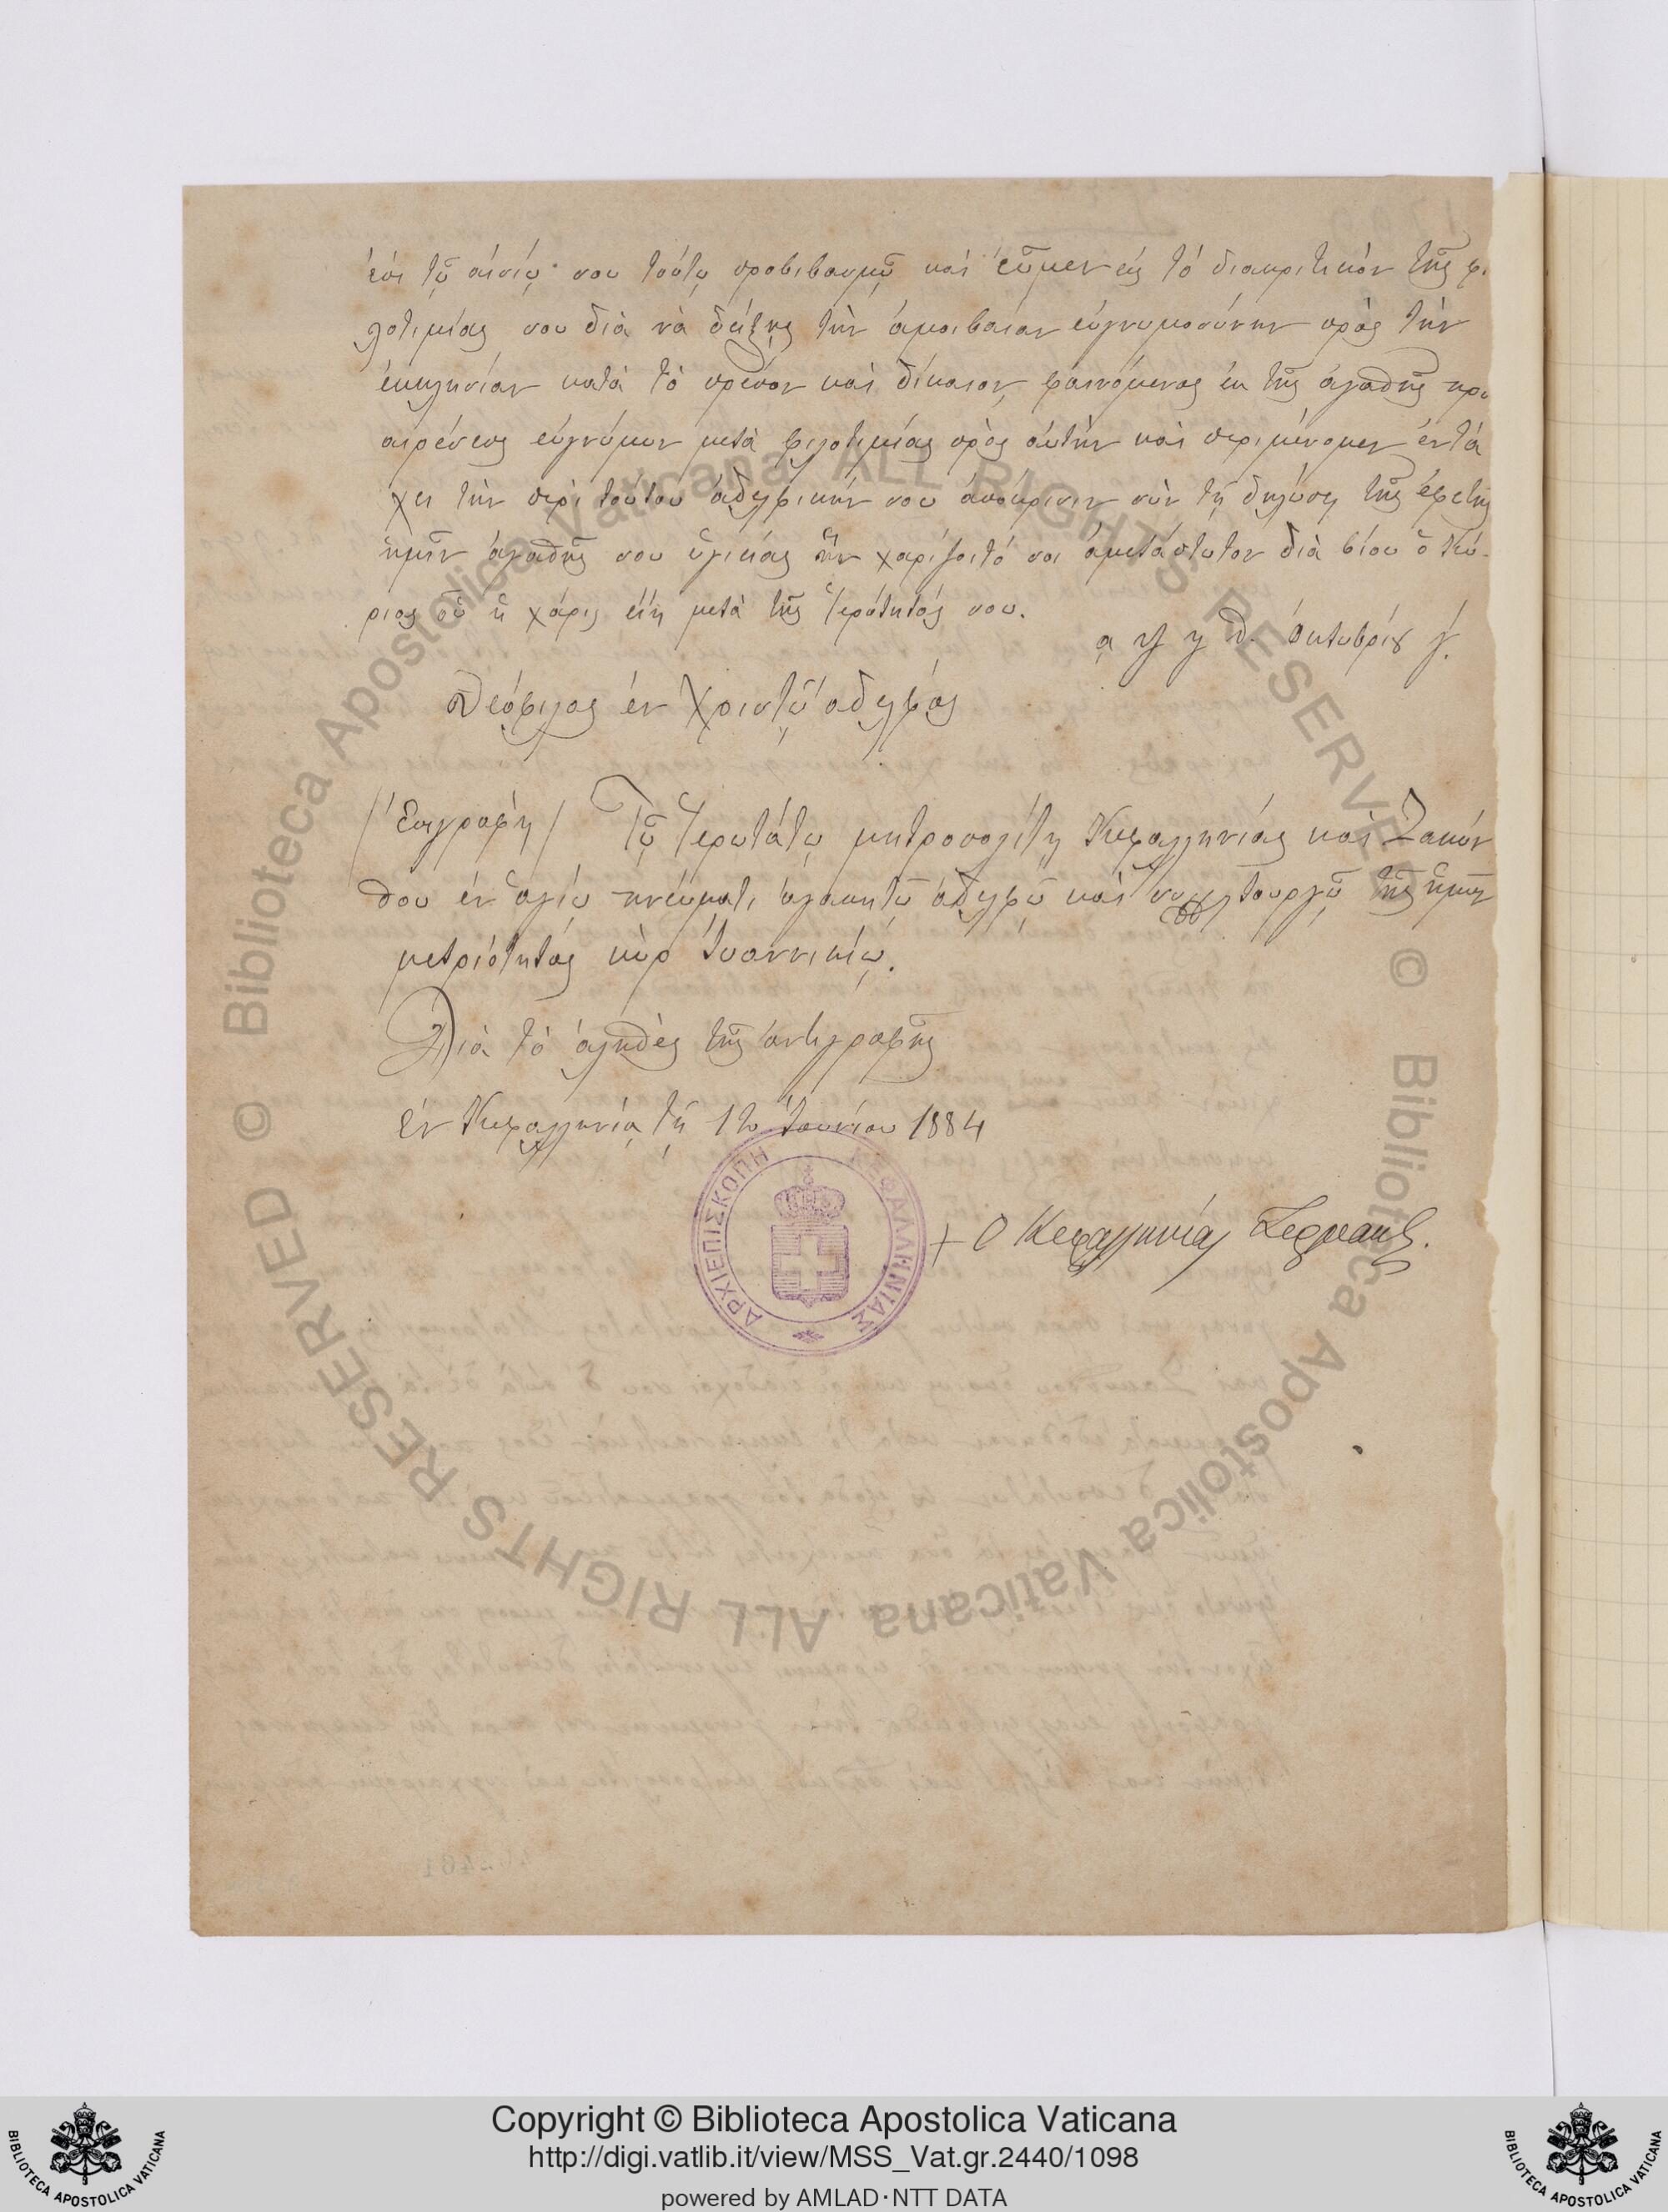 ἐπὶ τῷ αἰσίῳ σου τούτῳ προβιβασμῷ καὶ ἐῶμεν εἰς τὸ διακριτικὸν τῆς φι
λοτιμίας σου διὰ νὰ δείξῃς τὴν ἀμοιβαίαν εὐγνωμοσύνην πρὸς τὴν
ἐκκλησίαν κατὰ τὸ πρέπον καὶ δίκαιον, φαινόμενος ἐκ τῆς ἀγαθῆς προ
αιρέσεως εὐγνώμων μετὰ φιλοτιμίας πρὸς αὐτὴν καὶ περιμένομεν ἐν τά
χει τὴν περὶ τούτου ἀδελφικήν σου ἀπόκρισιν σὺν τῇ δηλώσει τῆς ἐφετῆς
ἡμῖν ἀγαθῆς σου ὑγιείας ἣν χαρίζοιτό σοι ἀμετάπτωτον διὰ βίου ὁ Κύ-
ριος οὗ ἡ χάρις εἴη μετὰ τῆς Ἱερότητός σου.
Ὀκτωβρίȣ γ.
Θεόφιλος ἐν Χριστῷ ἀδελφός
/Ἐπιγραφή/ Τῷ Ἱερωτάτῳ μητροπολίτῃ Κεφαλληνίας καὶ Ζακύν
θου ἐν ἁγίῳ πνεύματι ἀγαπητῷ ἀδελφῷ καὶ συλλειτουργῷ τῆς ἡμῶν
μετριότητος κὺρ Ἰωαννικίῳ.
Διὰ τὸ ἀληθὲς τῆς ἀντιγραφῆς
ἐν Κεφαλληνίᾳ τῇ Ἰουνίου 1884
ΑΡΧΙΕΠΙΣΚΟΠΗ ΚΕΦΑΛΛΗΝΙΑΣ
+ Ο Κεφαλληνίας Γερμανός.
Biblioteca Apostolica Vaticana ALL RIGHTS RESERVED ©
Biblioteca Apostolica Vaticana ALL RIGHTS RESERVED ©
Copyright © Biblioteca Apostolica Vaticana
http://digi.vatlib.it/view/MSS_Vat.gr.2440/1098
powered by AMLAD·NTT DATA
BIBLIOTECA APOSTOLICA VATICANA
BIBLIOTECA APOSTOLICA VATICANA